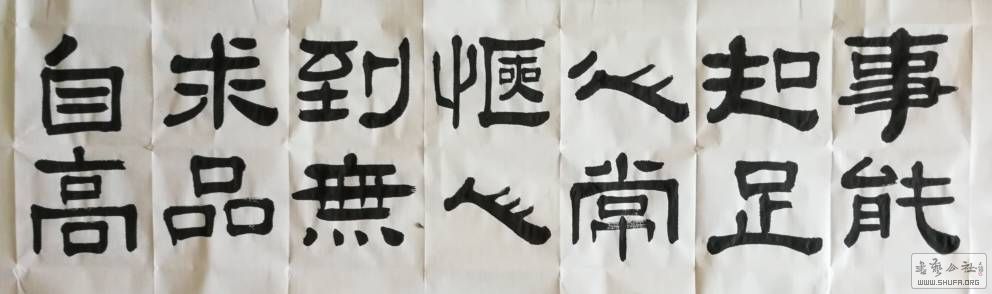 事能
知足
心常
愜人
到無
求品
自高
書藝公社
WWW.SHUFA.ORG